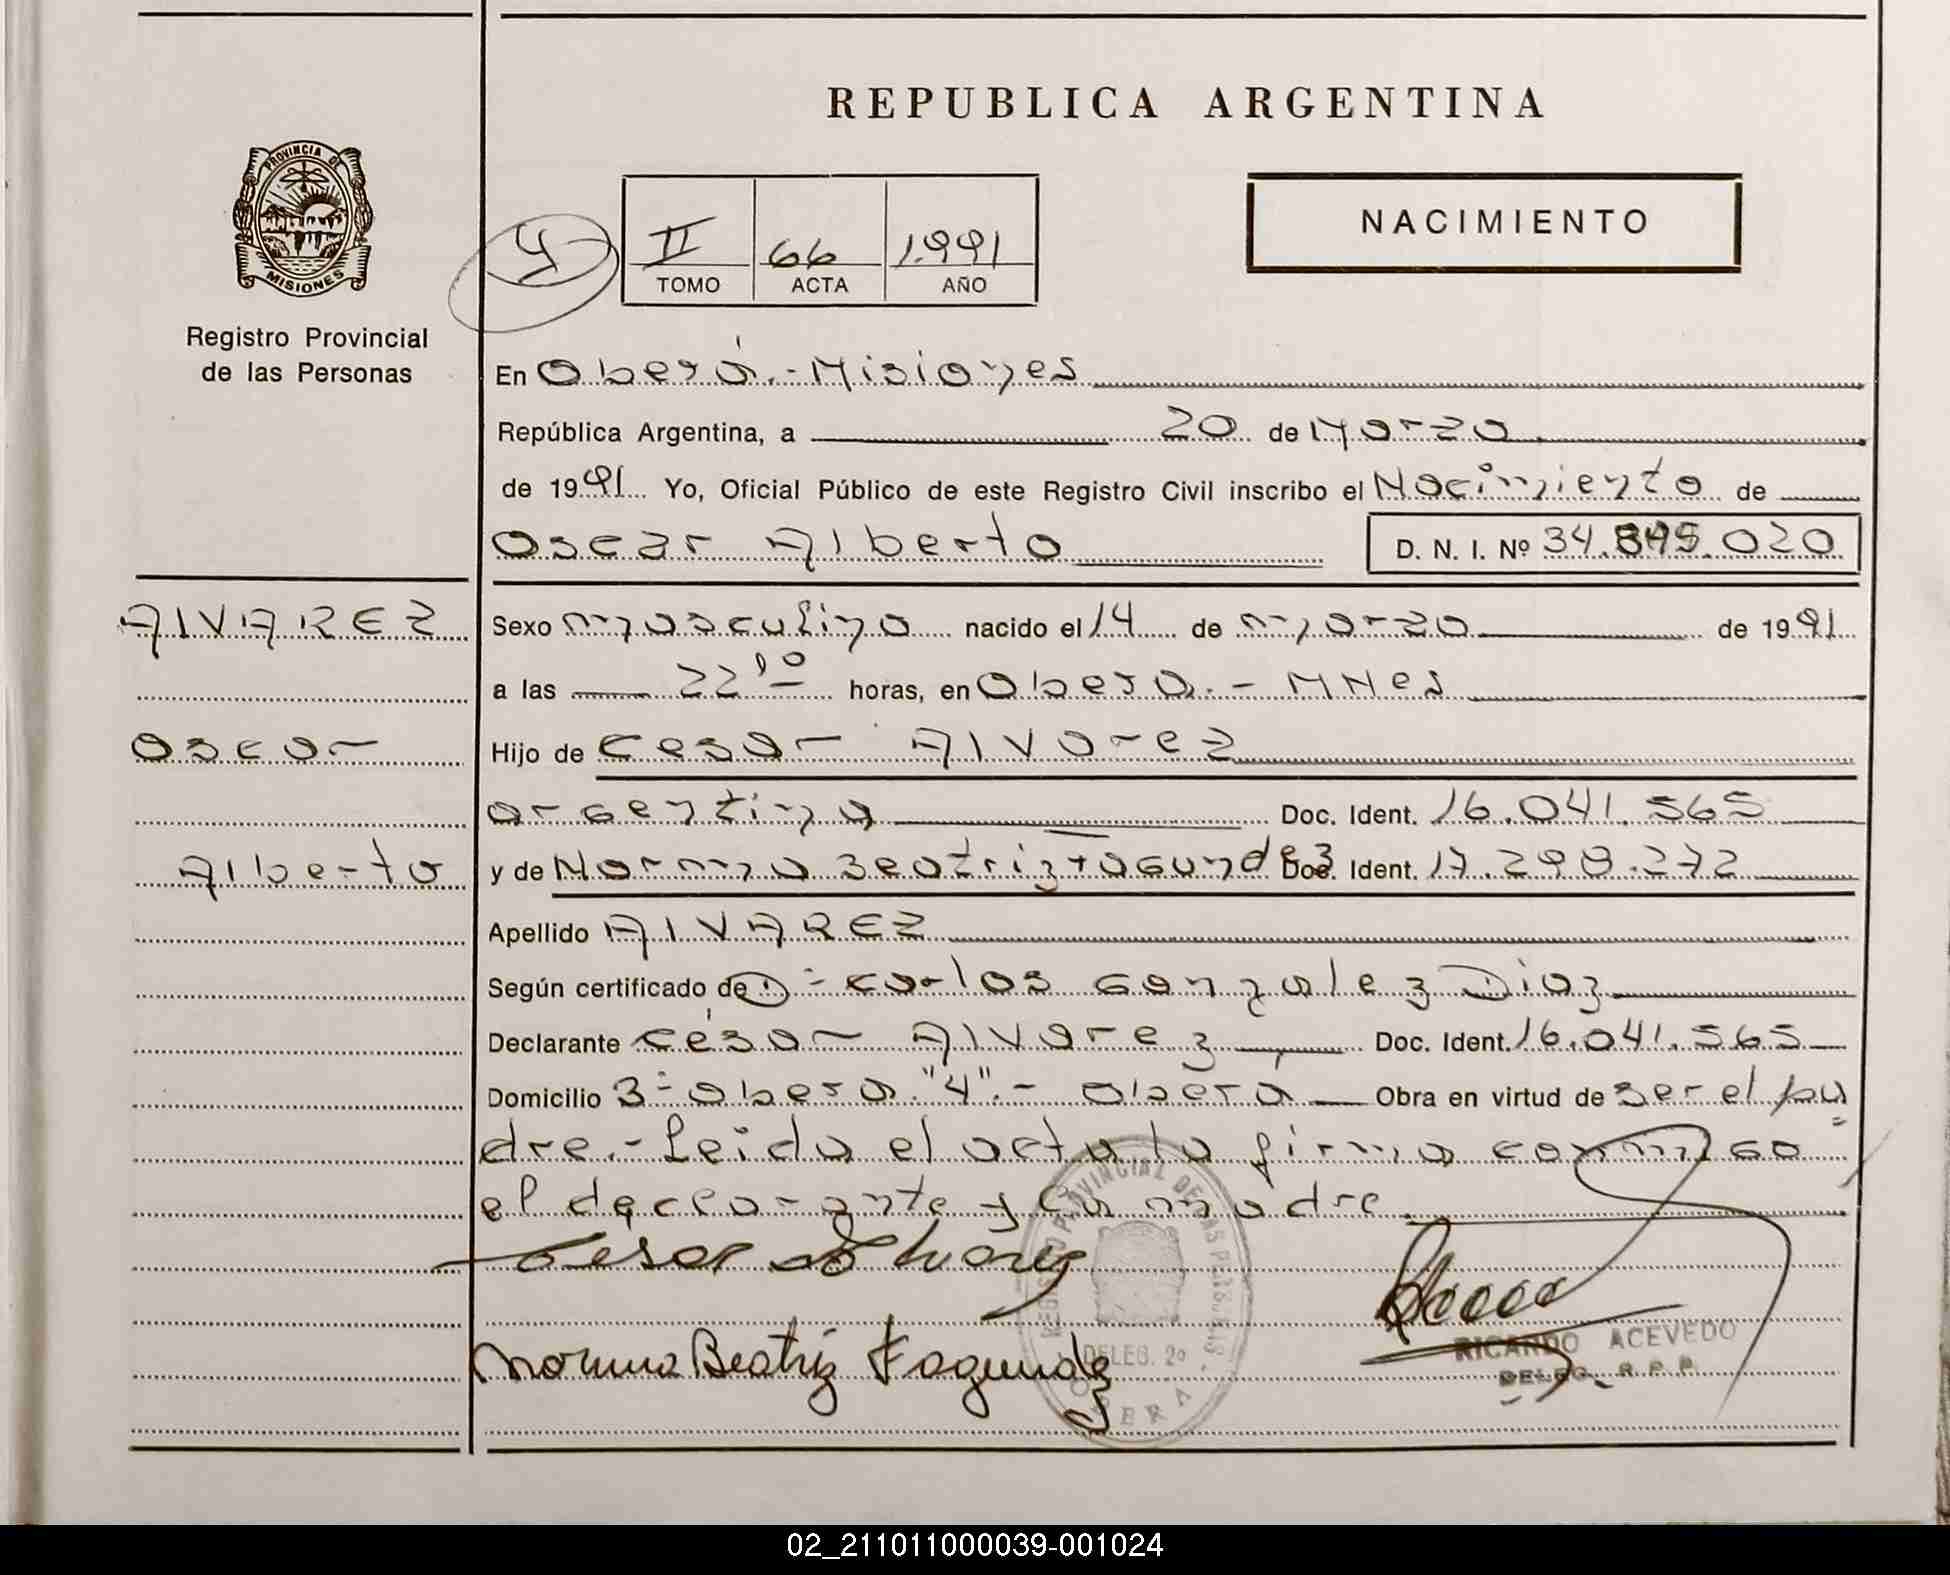 REPUBLICA ARGENTINA
PROVINCIA DE
MISIONES
Registro Provincial
de las Personas
II 66 1.991
TOMO ACTA AÑO
NACIMIENTO
En Oberá.- Misiones
República Argentina, a 20 de Marzo
de 1991 Yo, Oficial Público de este Registro Civil inscribo el Nacimiento de
Oscar Alberto D. N. I. Nº 34. .020
ALVAREZ
Oscar
Alberto
Sexo masculino nacido el 14 de marzo de 1991
a las 22 10 horas, en Oberá.- MNes
Hijo de Cesar Alvarez
argentina Doc. Ident. 16.041.565
y de Norma Beatriz Fagundez Doc. Ident. 17.298.272
Apellido ALVAREZ
Según certificado de D:- Carlos Gonzalez Diaz
Declarante César Alvarez Doc. Ident. 16.041.565
Domicilio 3- Oberá "4".- Oberá Obra en virtud de ser el pa
dre.- Leida el acta la firma conmigo
el declarante y la madre.
Cesar Alvarez
Norma Beatriz Fagundez
REGISTRO PROVINCIAL DE LAS PERSONAS
DELEG. 2º
OBERA
RICARDO ACEVEDO
DELEG. R.P.P.
02_211011000039-001024